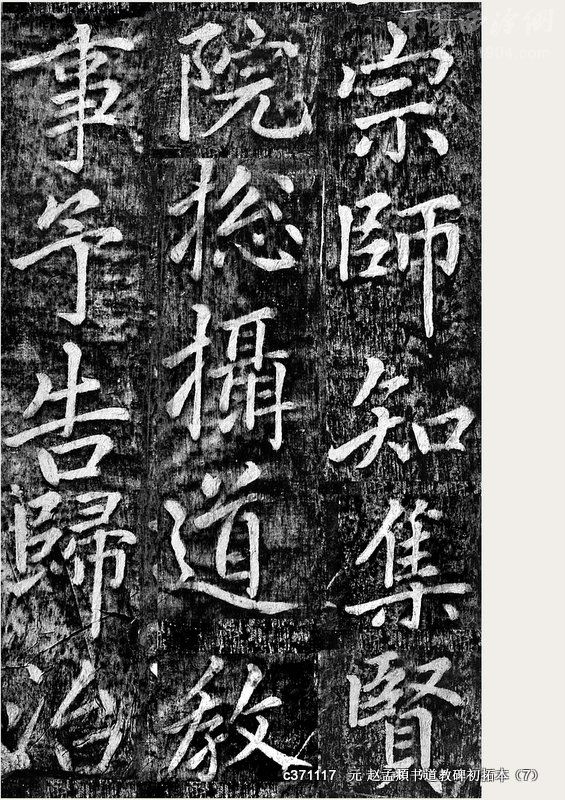 宗師知集賢
院揔攝道教
事予告歸治
c371117 元 赵孟頫书道教碑初拓本（7）